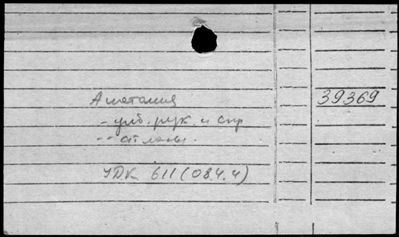 Анатомия 39369
- учб. рук. и спр
- атласы.
УДК 611(084.4)